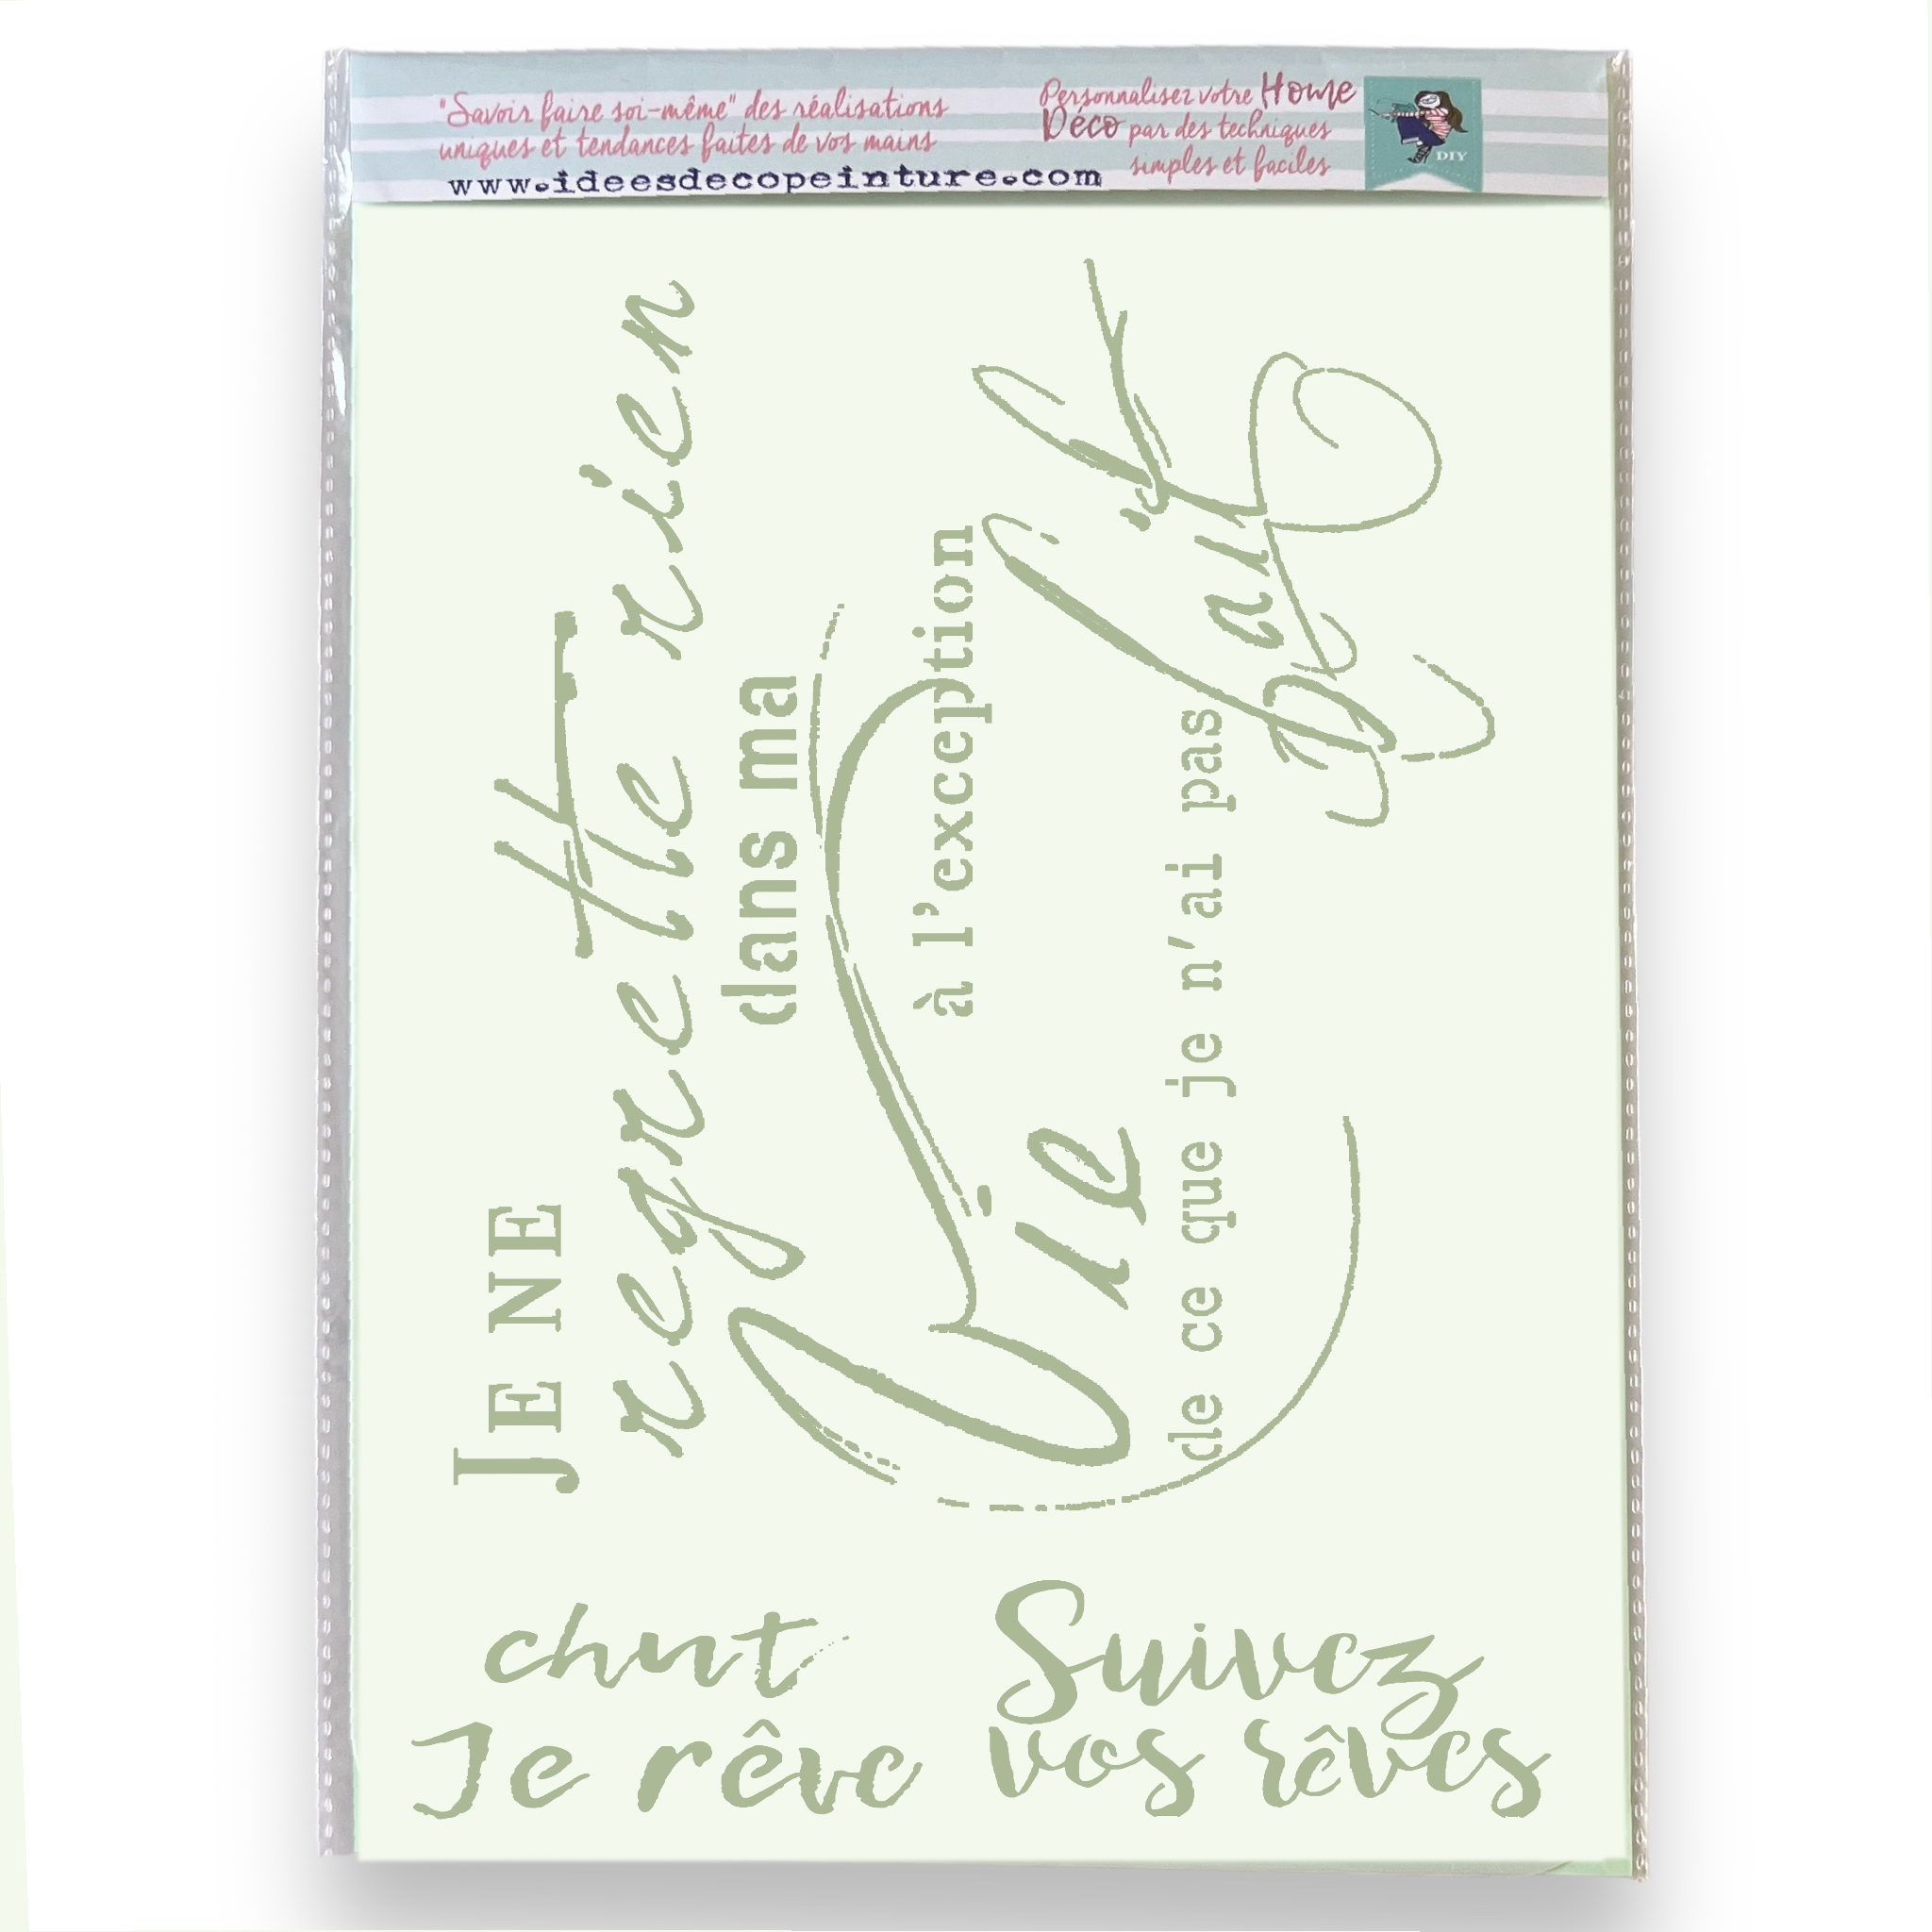 "Savoir faire soi-même" des réalisations
uniques et tendances faites de vos mains
www.ideesdecopeinture.com
Personnalisez votre Home
Déco par des techniques
simples et faciles
DIY
JE NE
regrette rien
dans ma
Vie
à l'exception
de ce que je n'ai pas
fait
chut
Je rêve
Suivez
vos rêves